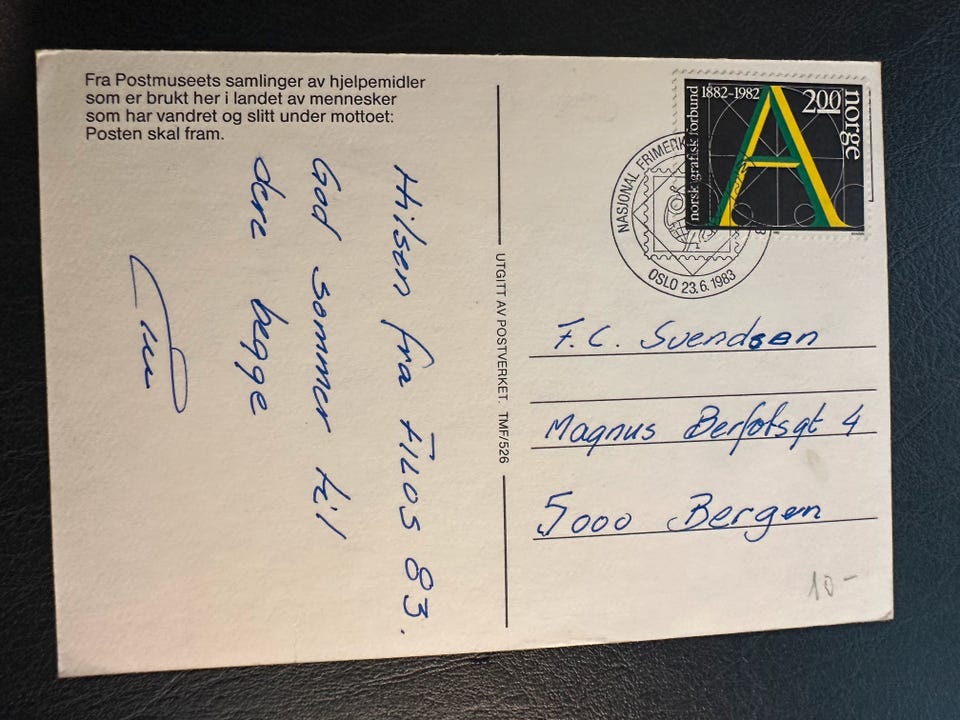 Fra Postmuseets samlinger av hjelpemidler
som er brukt her i landet av mennesker
som har vandret og slitt under mottoet:
Posten skal fram.
Hilsen fra FILOS 83.
God sommer til
dere begge
UTGITT AV POSTVERKET. TMF/526
norsk grafisk forbund
1882-1982
200
norge
A
NASJONAL
OSLO 23.6.1983
F.C. Svendsen
Magnus Berfotsgt 4
5000 Bergen
10-